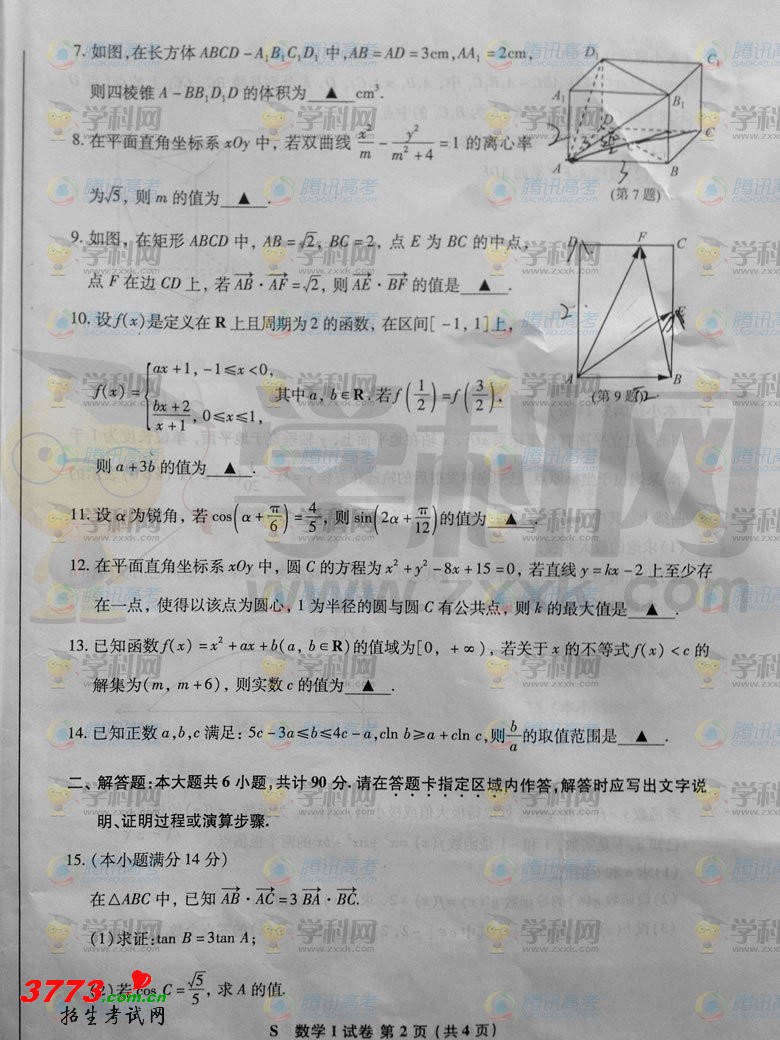 7. 如图,在长方体 ABCD－A₁B₁C₁D₁ 中,AB＝AD＝3cm,AA₁＝2cm,
则四棱锥 A－BB₁D₁D 的体积为 ▲ cm³.
D₁ C₁ A₁ B₁ D C A B
2 3 3
(第 7 题)
8. 在平面直角坐标系 xOy 中, 若双曲线 x²/m － y²/(m²＋4) ＝1 的离心率
为√5, 则 m 的值为 ▲ .
9. 如图, 在矩形 ABCD 中, AB＝√2, BC＝2, 点 E 为 BC 的中点,
点 F 在边 CD 上, 若 AB→·AF→＝√2, 则 AE→·BF→ 的值是 ▲ .
D F C E A B
2 √2
(第 9 题)
10. 设 f(x) 是定义在 R 上且周期为 2 的函数, 在区间[－1, 1]上,
f(x)＝{ax＋1, －1≤x＜0,
(bx＋2)/(x＋1), 0≤x≤1, 其中 a, b∈R. 若 f(1/2)＝f(3/2),
则 a＋3b 的值为 ▲ .
11. 设 α 为锐角, 若 cos(α＋π/6)＝4/5, 则 sin(2α＋π/12)的值为 ▲ .
12. 在平面直角坐标系 xOy 中, 圆 C 的方程为 x²＋y²－8x＋15＝0, 若直线 y＝kx－2 上至少存
在一点, 使得以该点为圆心, 1 为半径的圆与圆 C 有公共点, 则 k 的最大值是 ▲ .
13. 已知函数 f(x)＝x²＋ax＋b(a, b∈R)的值域为[0, ＋∞), 若关于 x 的不等式 f(x)＜c 的
解集为(m, m＋6), 则实数 c 的值为 ▲ .
14. 已知正数 a,b,c 满足: 5c－3a≤b≤4c－a,cln b≥a＋cln c,则 b/a 的取值范围是 ▲ .
二、解答题:本大题共 6 小题,共计 90 分.请在答题卡指定区域内作答,解答时应写出文字说
明、证明过程或演算步骤.
15. (本小题满分 14 分)
在△ABC 中, 已知 AB→·AC→＝3 BA→·BC→.
(1)求证:tan B＝3tan A;
(2)若 cos C＝√5/5, 求 A 的值.
S 数学 I 试卷 第 2 页 (共 4 页)
3773.com.cn
招生考试网
学科网
www.zxxk.com
腾讯高考